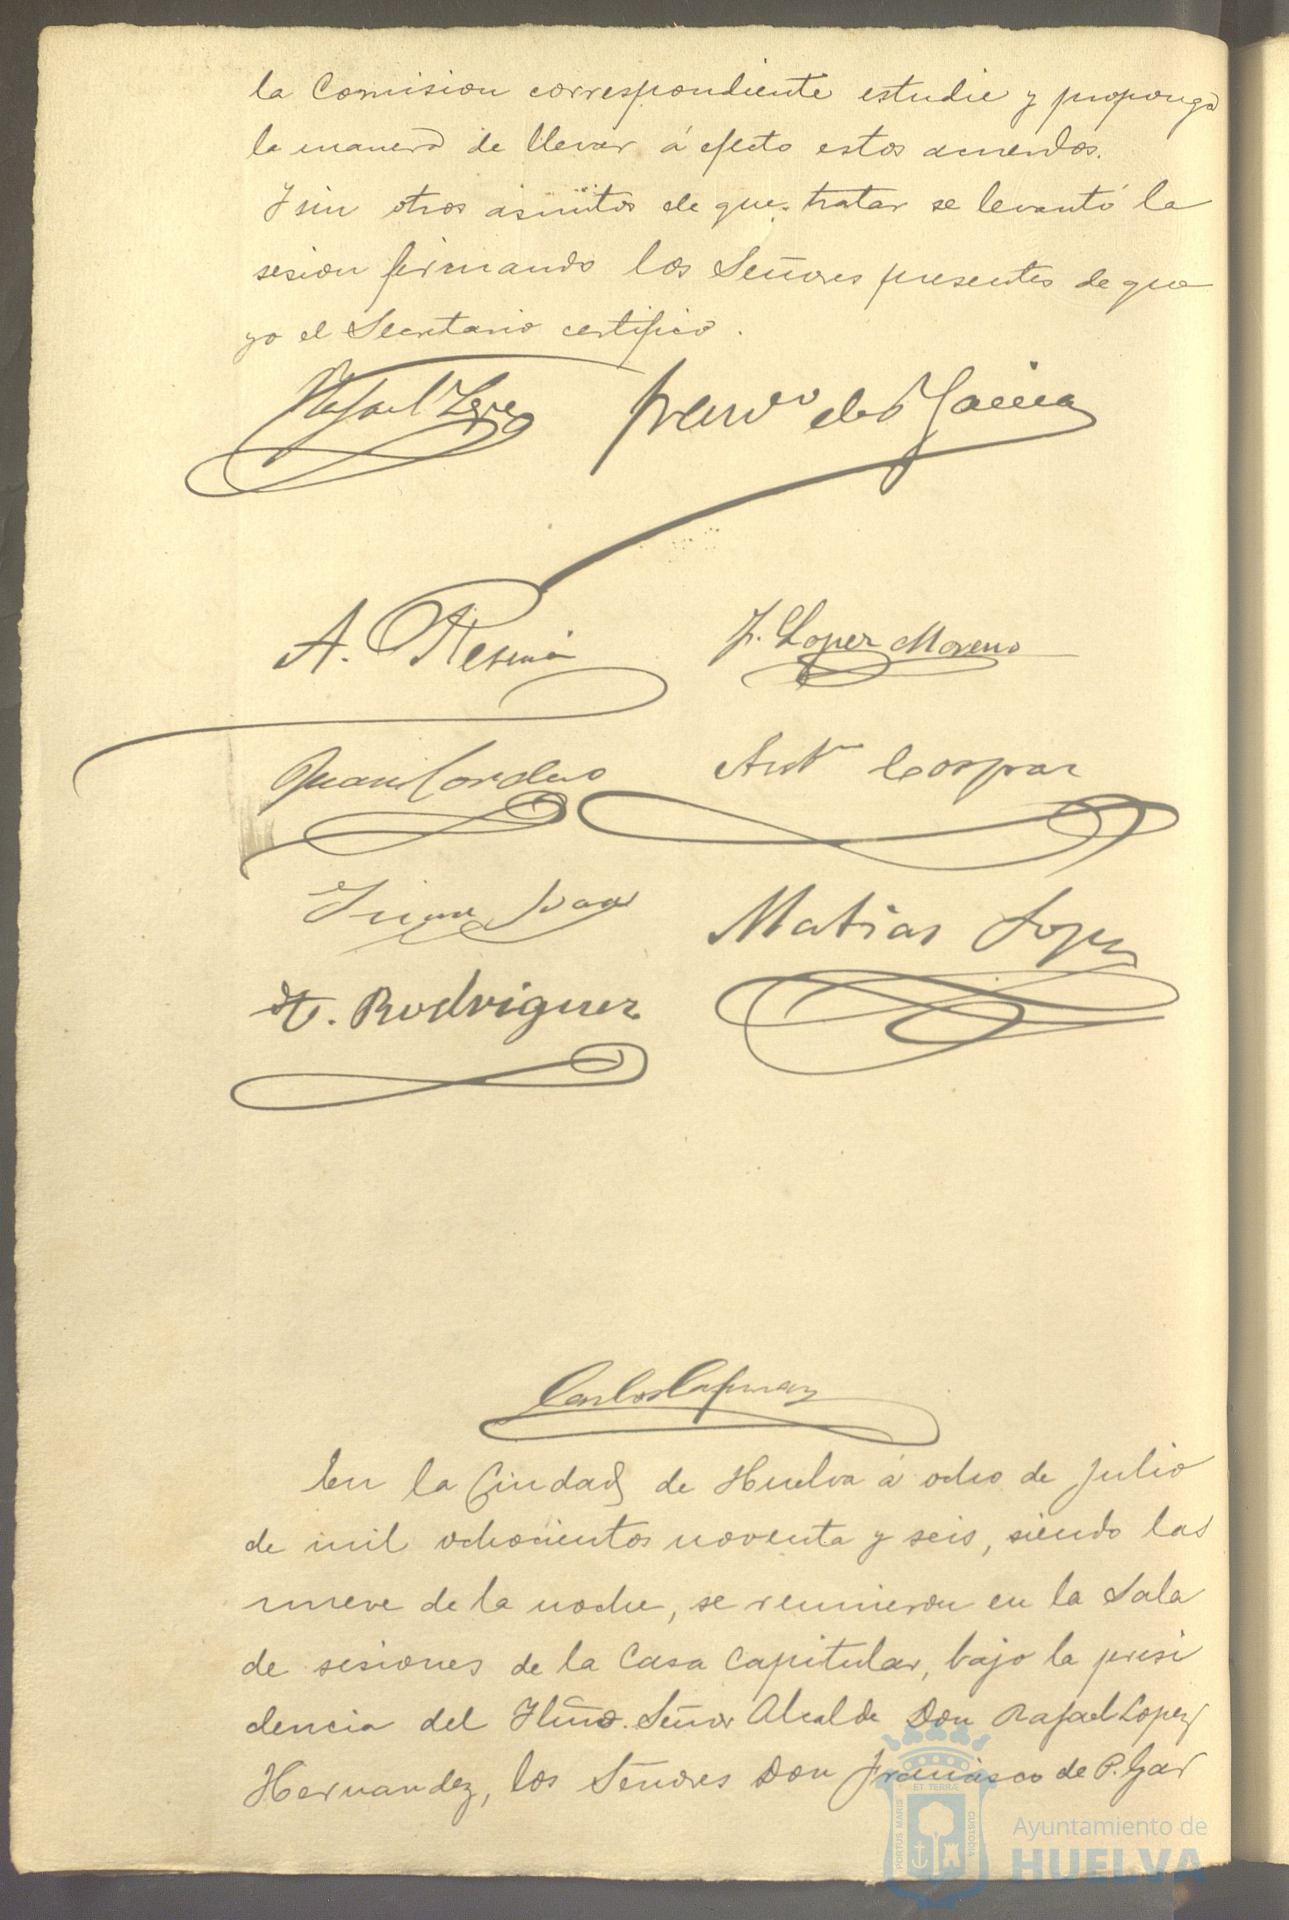 la Comision correspondiente estudie y proponga
la manera de llevar á efecto estos acuerdos.
Y sin otros asuntos de que tratar se levantó la
sesion firmando los Señores presentes de que
yo el Secretario certifico.
Rafael Lopez
Franco de P Garcia
A. Resma
J. Lopez Moreno
Juan Cordero
Anto Gaspar
Juan
Matias Lopez
A. Rodriguez
Carlos Capmany
En la Ciudad de Huelva á ocho de Julio
de mil ochocientos noventa y seis, siendo las
nueve de la noche, se reunieron en la Sala
de sesiones de la Casa Capitular, bajo la presi
dencia del Iltmo. Señor Alcalde Don Rafael Lopez
Hernandez, los Señores Don Francisco de P. Gar
PORTUS MARIS ET TERRÆ CUSTODIA
Ayuntamiento de
HUELVA